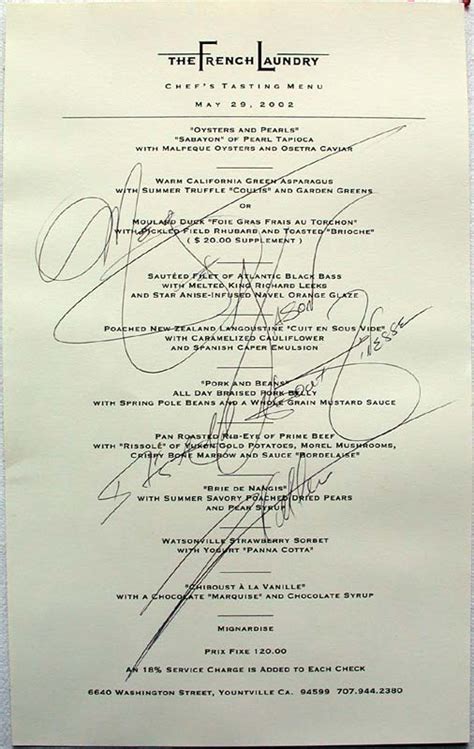 THE FRENCH LAUNDRY
CHEF'S TASTING MENU
MAY 29, 2002
"OYSTERS AND PEARLS"
"SABAYON" OF PEARL TAPIOCA
WITH MALPEQUE OYSTERS AND OSETRA CAVIAR
WARM CALIFORNIA GREEN ASPARAGUS
WITH SUMMER TRUFFLE "COULIS" AND GARDEN GREENS
OR
MOULARD DUCK "FOIE GRAS FRAIS AU TORCHON"
WITH PICKLED FIELD RHUBARB AND TOASTED "BRIOCHE"
( $ 20.00 SUPPLEMENT )
SAUTÉED FILET OF ATLANTIC BLACK BASS
WITH MELTED KING RICHARD LEEKS
AND STAR ANISE-INFUSED NAVEL ORANGE GLAZE
JASON
POACHED NEW ZEALAND LANGOUSTINE "CUIT EN SOUS VIDE"
WITH CARAMELIZED CAULIFLOWER
AND SPANISH CAPER EMULSION
"PORK AND BEANS"
ALL DAY BRAISED PORK BELLY
WITH SPRING POLE BEANS AND A WHOLE GRAIN MUSTARD SAUCE
It's all about FINESSE
PAN ROASTED RIB-EYE OF PRIME BEEF
WITH "RISSOLÉ" OF YUKON GOLD POTATOES, MOREL MUSHROOMS,
CRISPY BONE MARROW AND SAUCE "BORDELAISE"
"BRIE DE NANGIS"
WITH SUMMER SAVORY POACHED DRIED PEARS
AND PEAR SYRUP
WATSONVILLE STRAWBERRY SORBET
WITH YOGURT "PANNA COTTA"
"CHIBOUST À LA VANILLE"
WITH A CHOCOLATE "MARQUISE" AND CHOCOLATE SYRUP
MIGNARDISE
PRIX FIXE 120.00
AN 18% SERVICE CHARGE IS ADDED TO EACH CHECK
6640 WASHINGTON STREET, YOUNTVILLE CA. 94599 707.944.2380